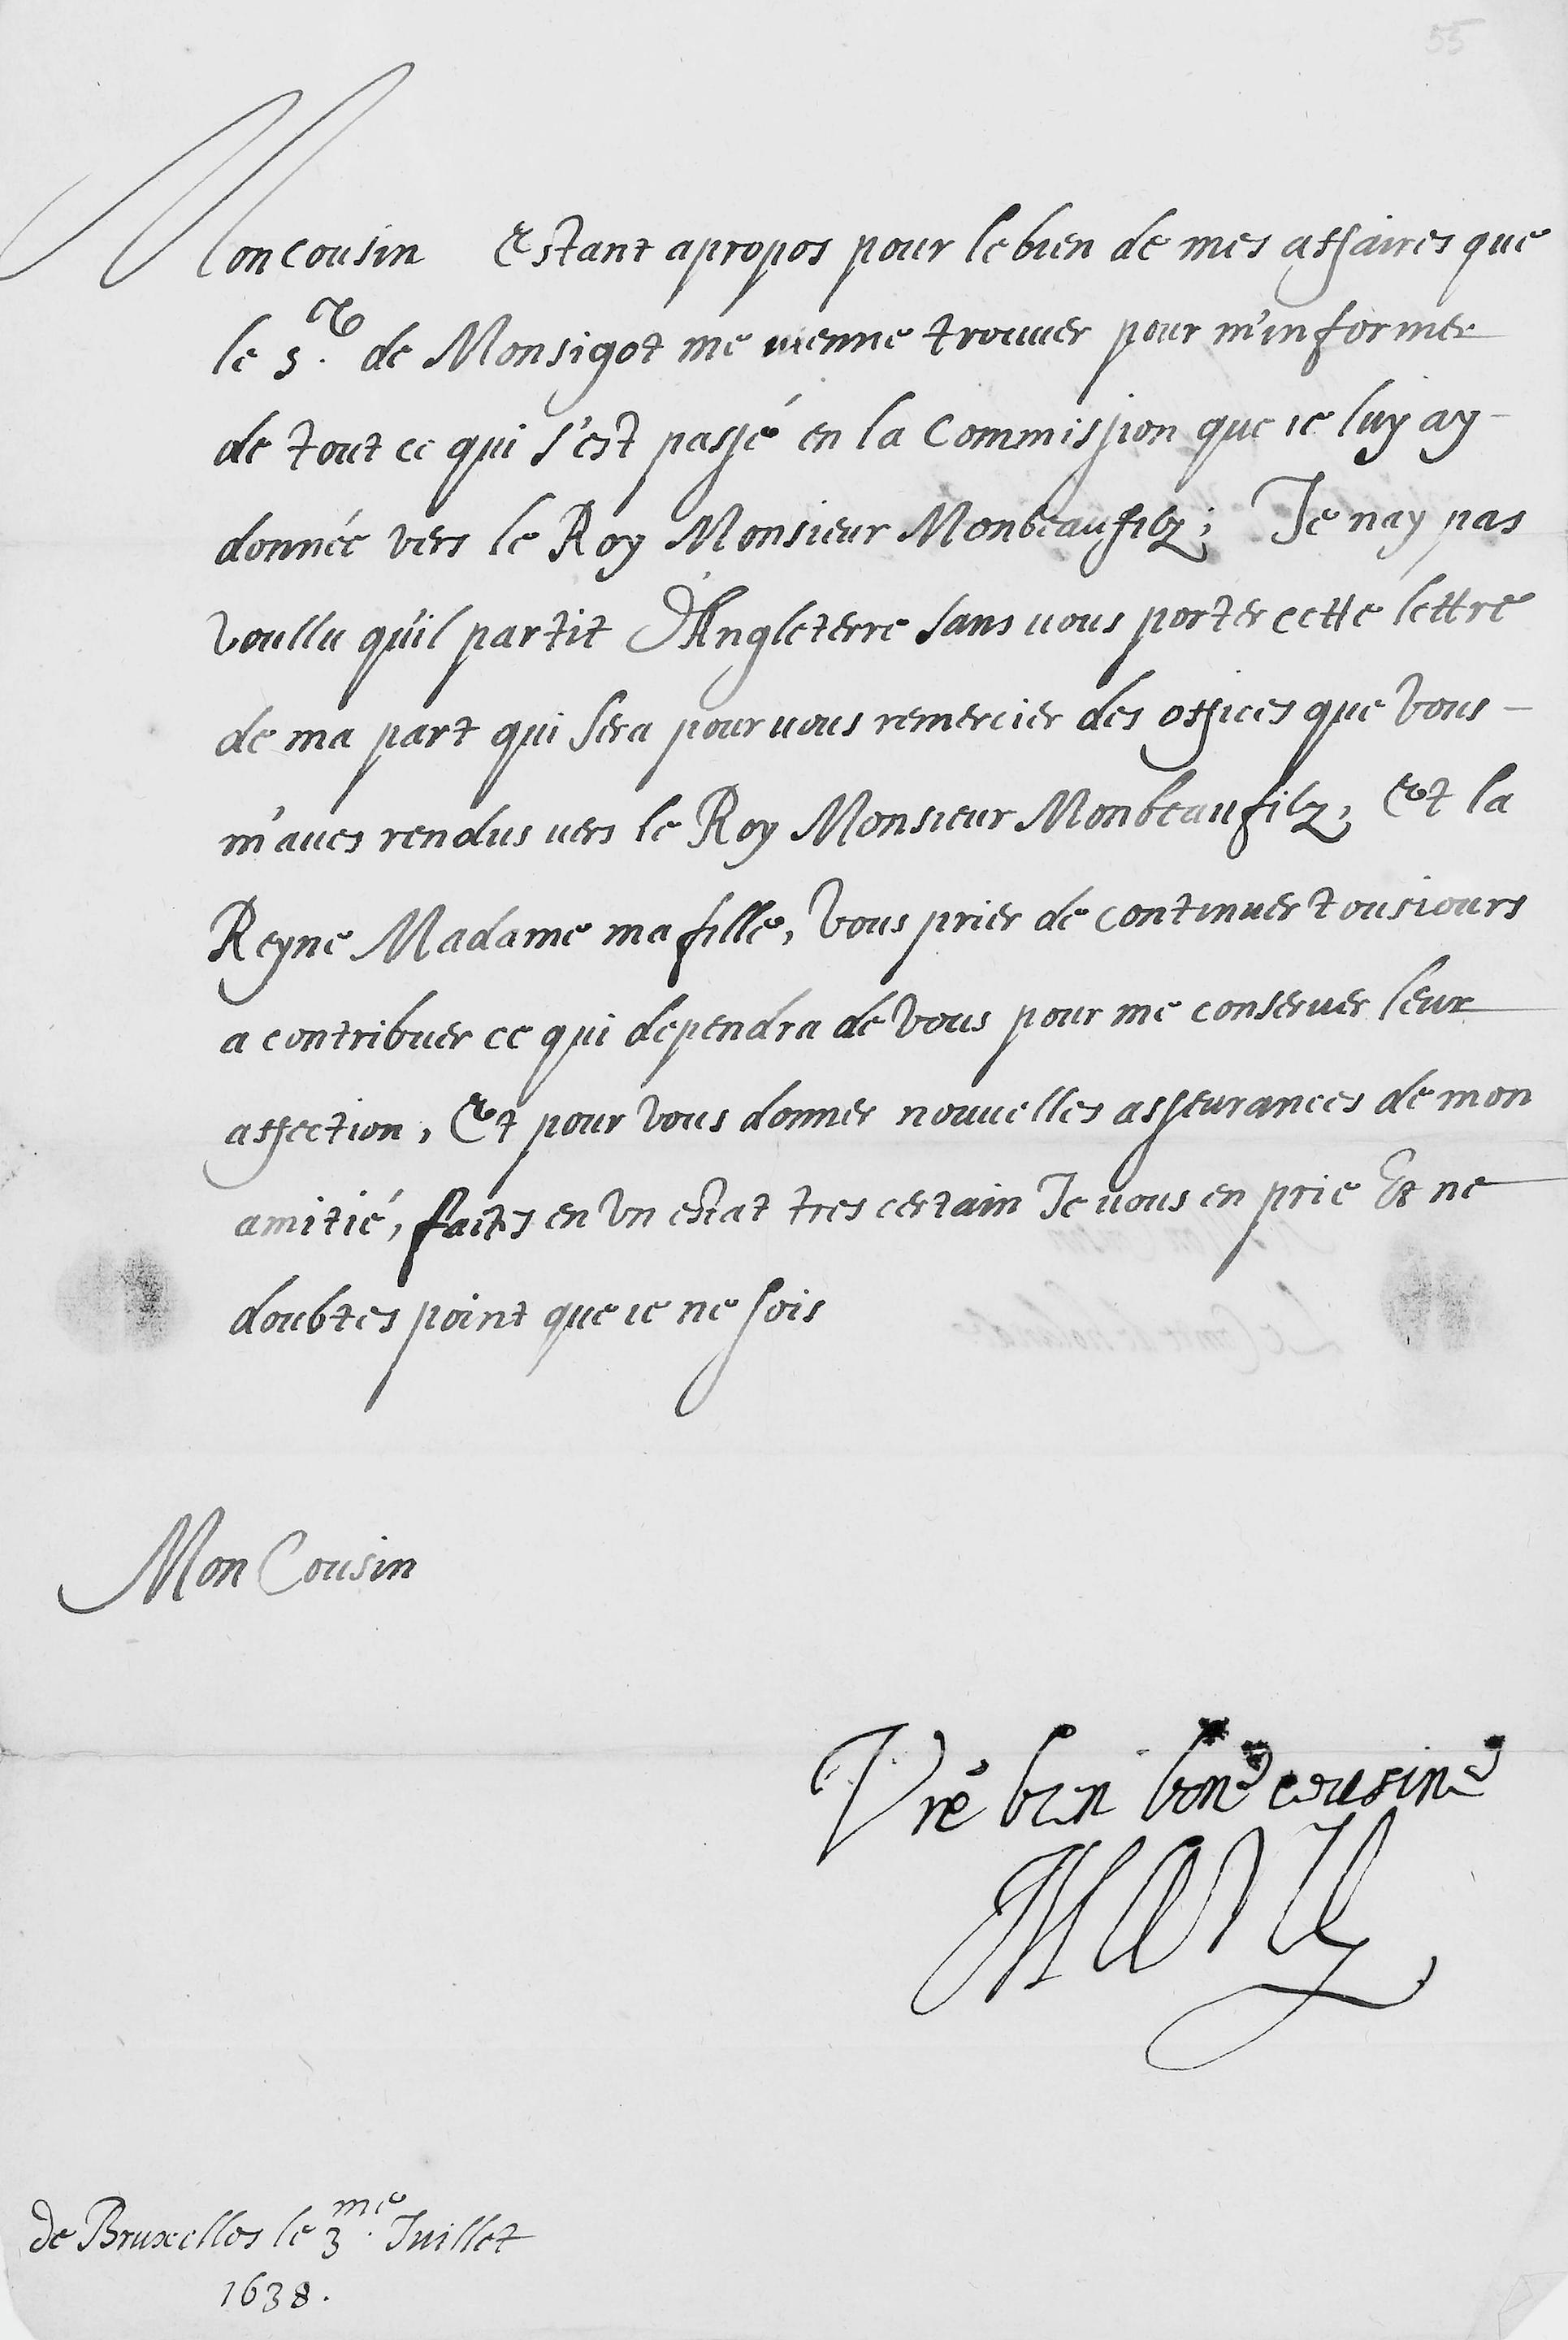 55
Mon cousin Estant apropos pour le bien de mes affaires que
le sr. de Monsigot me vienne trouuer pour m'informer
de tout ce qui s'est passé en la Commission que ie luy ay
donnée vers le Roy Monsieur Monbeaufilz; Je nay pas
voullu qu'il partit D'Angleterre sans uous porter cette lettre
de ma part qui sera pour uous remercier des offices que vous
m'aues rendus uers le Roy Monsieur Monbeaufilz, Et la
Reyne Madame ma fille, vous prier de continuer tousiours
a contribuer ce qui dependra de vous pour me conseruer leur
affection, Et pour vous donner nouuelles asseurances de mon
amitié, faites en vn estat tres certain Je uous en prie Et ne
doubtes point que ie ne sois
Mon Cousin
Vre bien bonne cousine
Marie
de Bruxelles le 3me. Juillet
1638.